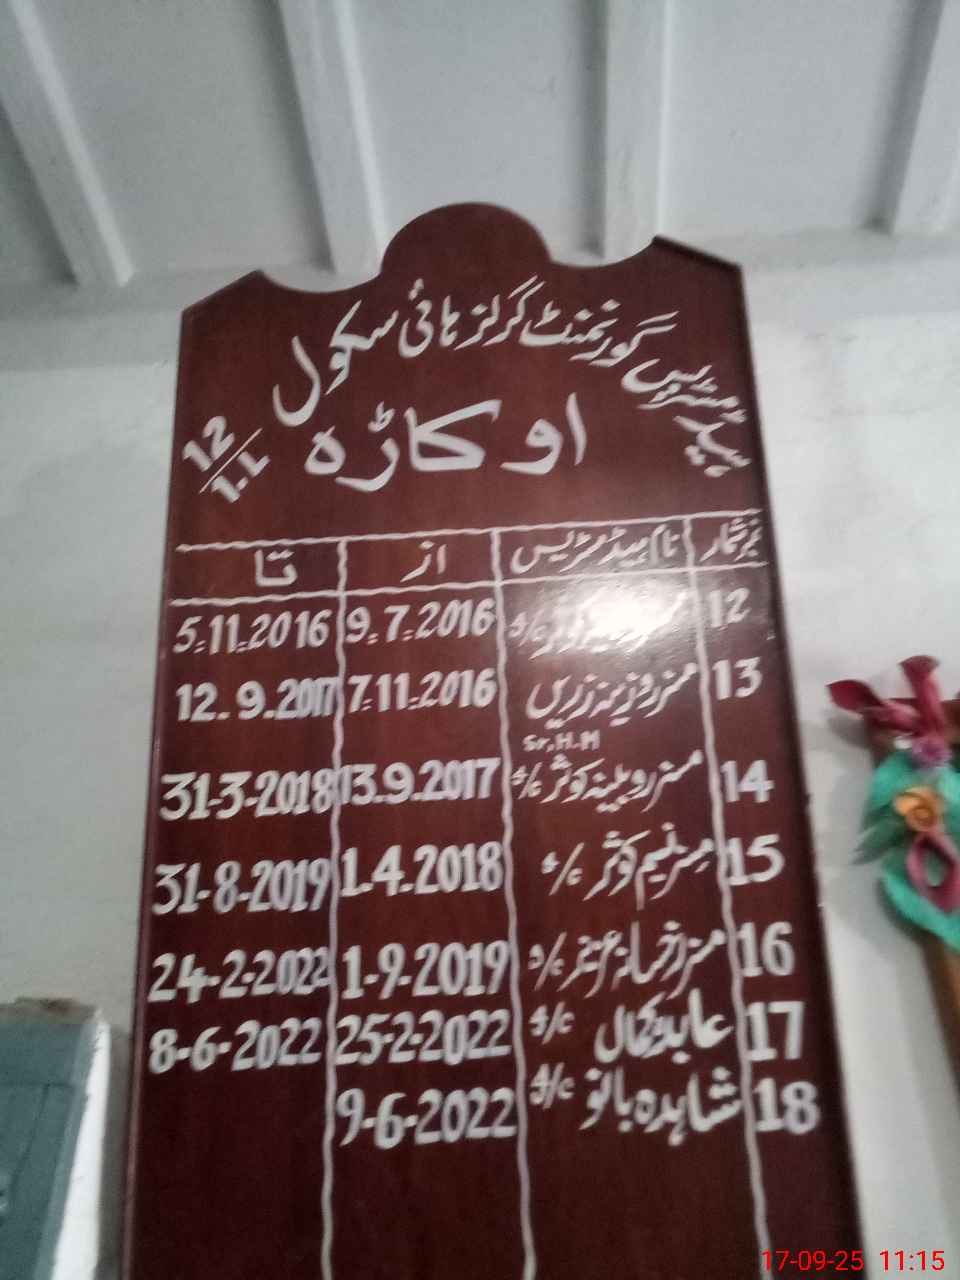 ہیڈ مسٹریس گورنمنٹ گرلز ہائی سکول
اوکاڑہ
12/1.L
نمبر شمار نام ہیڈ مسٹریس از تا
12 کوثر 9.7.2016 5.11.2016
13 مسز روزینہ زریں 7.11.2016 12.9.2017
Sr.H.M
14 مسز روبینہ کوثر 13.9.2017 31-3-2018
15 مسز نسیم کوثر 1.4.2018 31-8-2019
16 مسز رخسانہ 1-9-2019 24-2-2022
17 عابدہ کمال 25-2-2022 8-6-2022
18 شاہدہ بانو 9-6-2022
17-09-25 11:15